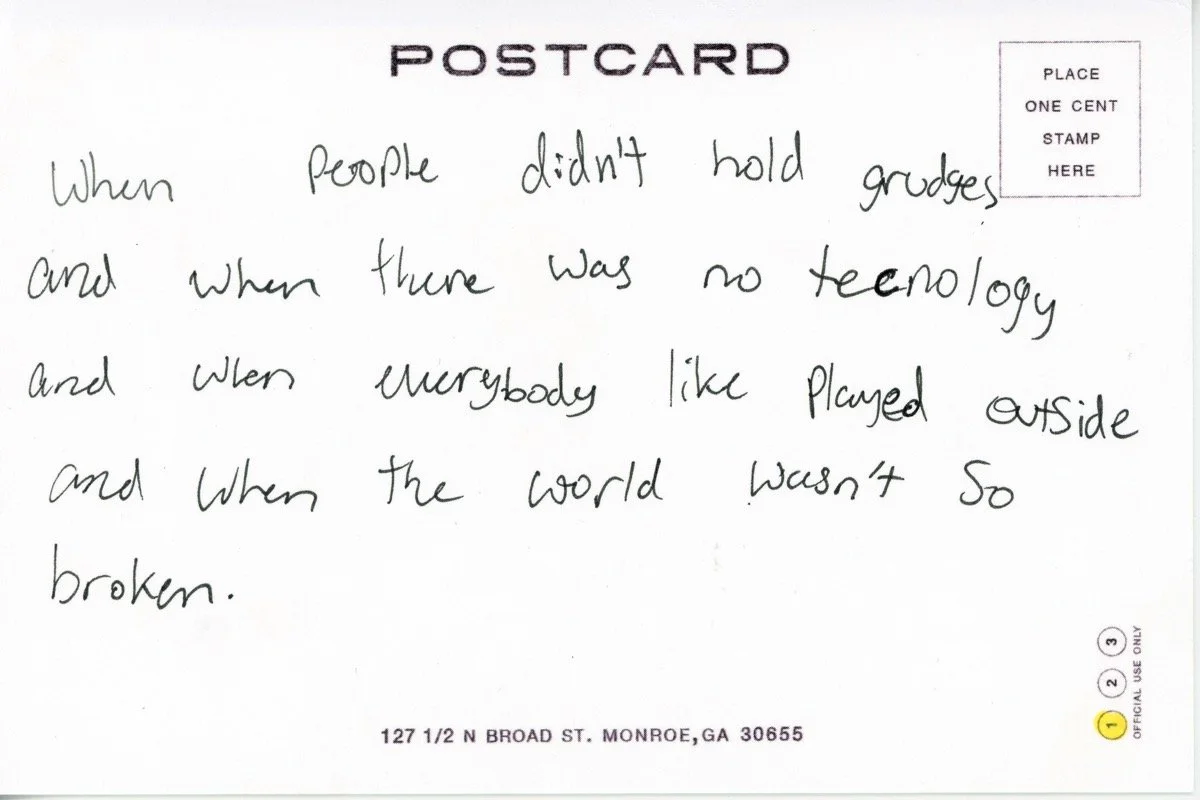 POSTCARD
PLACE
ONE CENT
STAMP
HERE
When people didn't hold grudges
and when there was no tecnology
and when everybody like played outside
and when the world wasn't so
broken.
1 2 3
OFFICIAL USE ONLY
127 1/2 N BROAD ST. MONROE, GA 30655